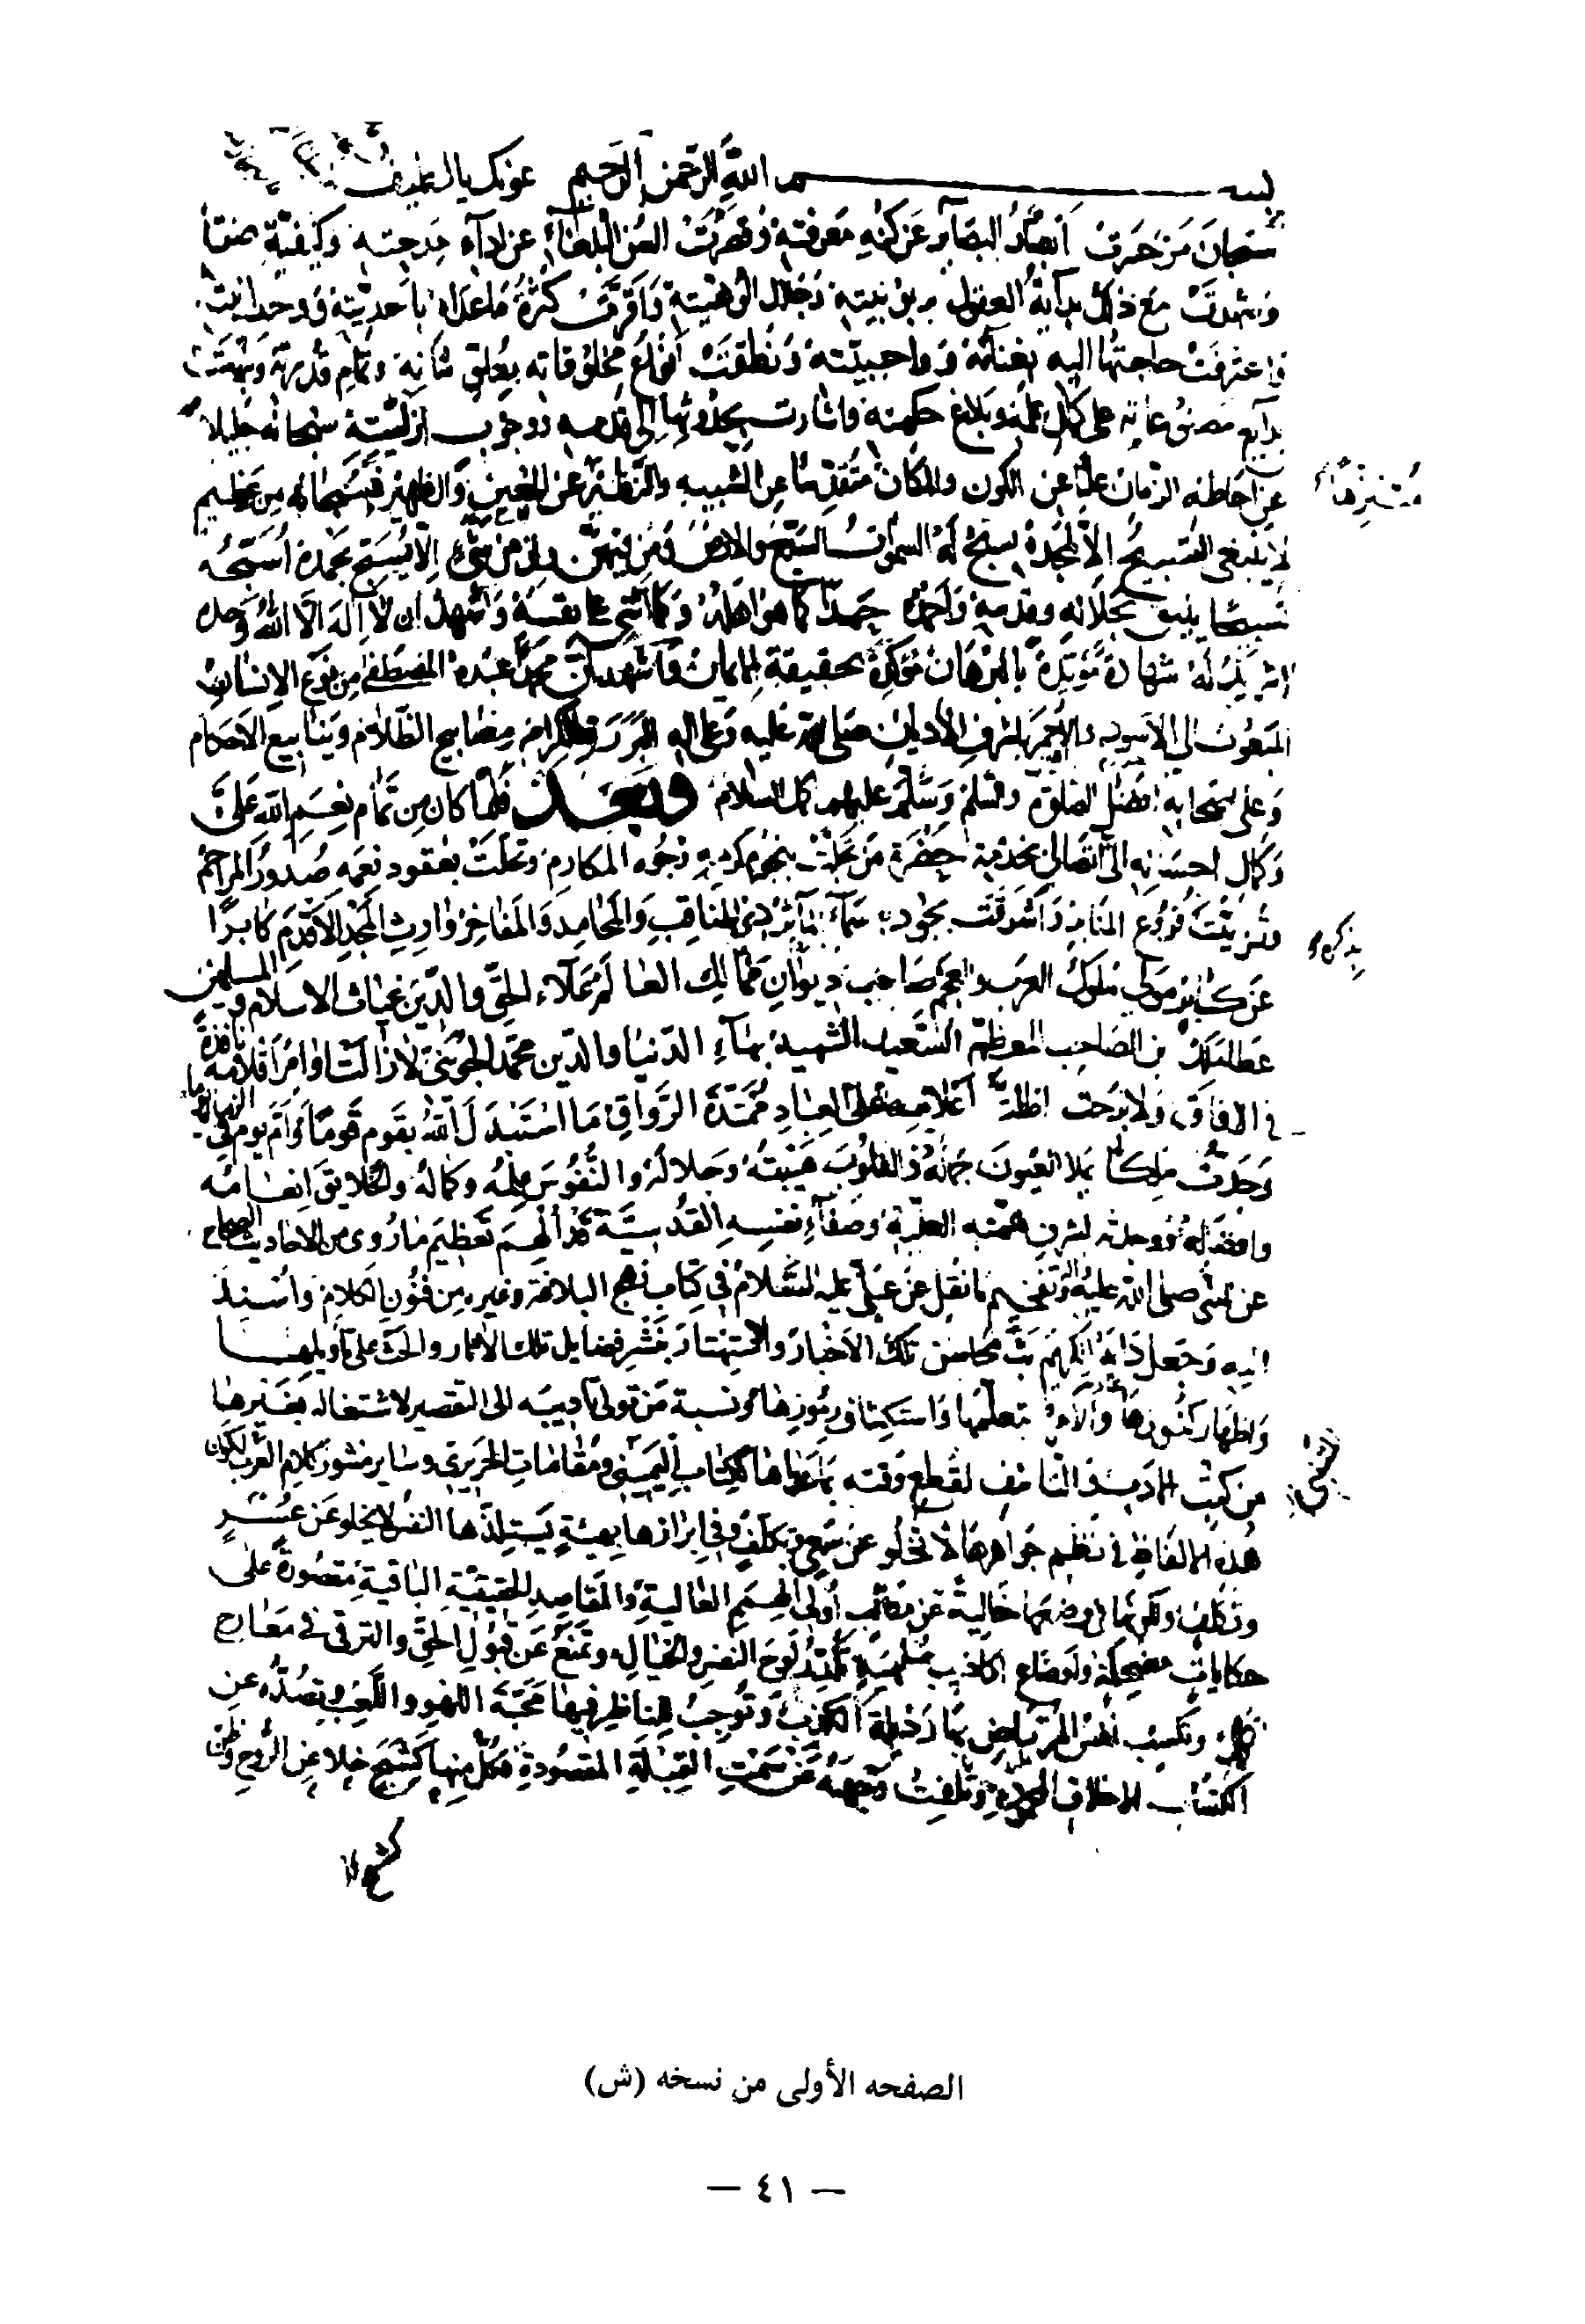 بسم الله الرحمن الرحيم عونك يا لطيف
سبحان من حسرت أبصار البصاير عن كنه معرفته وقصرت ألسن البلغاء عن أداء مدحته وكيفية صفته
وشهدت مع ذلك بداية العقول بربوبيته وجلال الوهيته وأقرت كثرة ما عداه بأحديته ووحدانيته
واعترفت حاجتها اليه بغنائه وواجبيته ونطقت أنواع مخلوقاته بعلو شانه وتمام قدرته وشهدت
بدايع مصنوعاته على كمال علمه وبلاغ حكمته واشارت بحدوثها إلى قدمه ووجوب ازليته سبحانه جليلا
متنزها
عن احاطة الزمان عليا عن الكون والمكان متقدسا عن الشبيه والنظير عن المعين والظهير فسبحانه من عظيم
لا ينبغي التسبيح إلا لمجده يسبح له السموات السبع والارض ومن فيهن وان من شيء إلا يسبح بحمده أسبحه
تسبيحا يليق بجلاله وقدسه وأحمده حمدا كما هو اهله وكما أثنى على نفسه وأشهد ان لا اله الا الله وحده
لا شريك له شهادة مؤيدة بالبرهان مؤكدة بحقيقة الايمان وأشهد أن محمدا عبده المصطفى من نوع الإنسان
المبعوث إلى الأسود والأحمر بأشرف الأديان صلى الله عليه وعلى اله البررة الكرام مصابيح الظلام وينابيع الأحكام
وعلى صحابه أفضل الصلوة والسلم وسلم عليهم كل السلام وبعد فلما كان من تمام نعم الله علي
وكمال احسانه الي اتصالي بخدمة حضرة من تجلت بنجوم كرمه وجوه المكارم وتحلت بعقود نعمه صدور المراحم
وتزينت بذكره فروع المنابر وأشرقت بجوده سماء المآثر ذي المناقب والمحامد والمفاخر وارث المجد الأقدم كابرا
عن كابر مولى ملوك العرب والعجم صاحب ديوان ممالك العالم علاء الحق والدين غياث الاسلام والمسلمين
عطاملك بن الصاحب المعظم السعيد الشهيد بهاء الدنيا والدين محمد الجويني لا زالت أوامر أقلامه نافذة
في الآفاق ولا برحت اظلة أعلامه على العباد ممتدة الرواق ما استبدل الله بقوم قوما وأقام يوم في
وجدت ملكا يملا العيون جماله والقلوب هيبته وجلاله والنفوس علمه وكماله والخلايق انعامه
وافضاله ووجدته لشرف همته العلية وصفاء نفسه القدسية قد ألهم تعظيم ما روى من الاحاديث الصحاح
عن النبي صلى الله عليه وتفخيم ما نقل عن علي عليه السلام في كتاب نهج البلاغة وغيره من فنون الكلام وأسند
اليه وجعل دأبه بث محاسن تلك الأخبار والاستهتار بنشر فضايل تلك الآثار والحث على تأويلها
واظهار كنوزها والأمر بتعلمها واستكشاف رموزها ونسبة من تولى تأديبه الى التقصير لاشتغاله بغيرها
من كتب الأدب والتأسف لقطع وقته بما عداها ككتاب اليميني ومقامات الحريري وساير منثور كلام العرب لكون
هذه الالفاظ في نظم جواهرها لا تخلو عن سعي وتكلف وفي ابرازها بهيئة يستلذها النفس لا يخلو عن عسر
وتكلف ولكونها في وضعها خالية عن مطالب أولي الهمم العالية والمقاصد الحقيقية الباقية مقصورة على
حكايات مضحكة وأوضاع اكاذيب ملهية تكدر لوح النفس والخيال وتمنع عن قبول الحق والترقي في معارج
وتكسب نفس المرتاض بها رذيلة الكذب وتوجب للناظر فيها محبة اللهو واللعب وتصده عن
اكتساب الاخلاق وتلفت وجهه عن سمت القبلة المقصودة فكل منها كشبح خلا عن الروح
كشبح خلا
الصفحه الأولى من نسخه (ش)
— ٤١ —